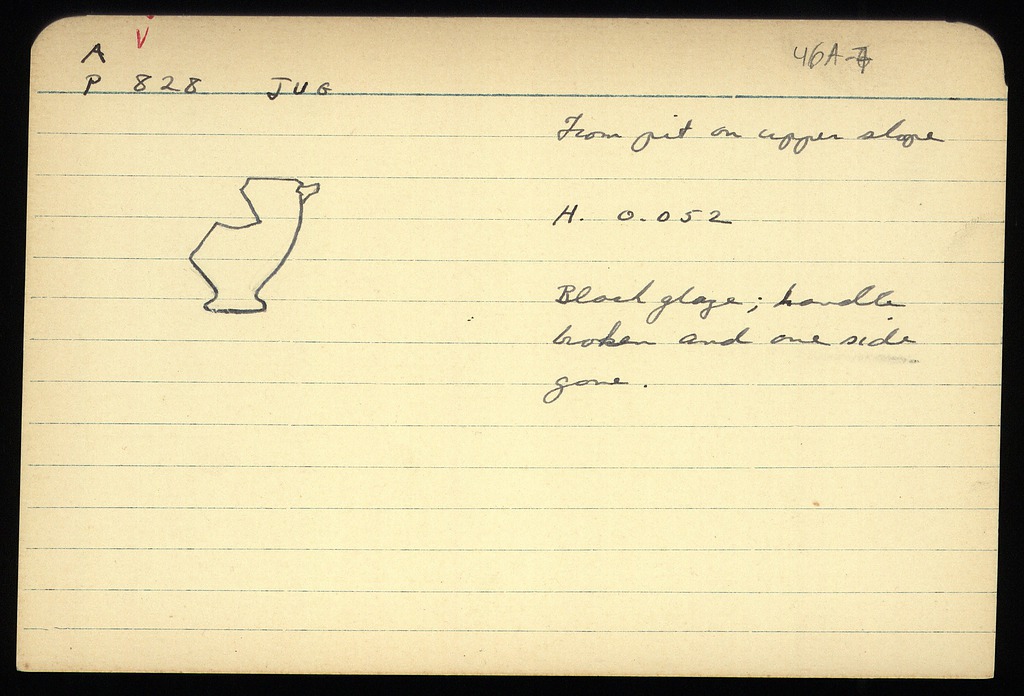 A V
46A-7
P 828 JUG
From pit on upper slope
H. 0.052
Black glaze; handle
broken and one side
gone.